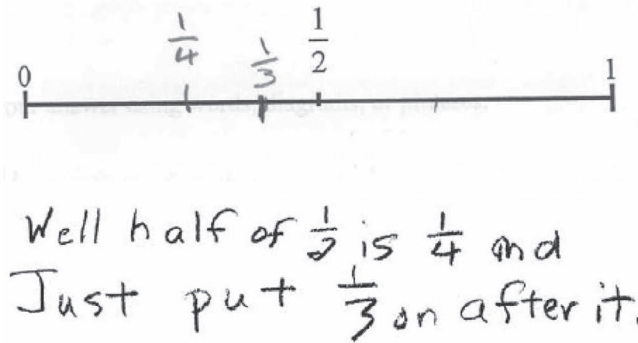 1/4 1/3 1/2
0 1
Well half of 1/2 is 1/4 and
Just put 1/3 on after it.